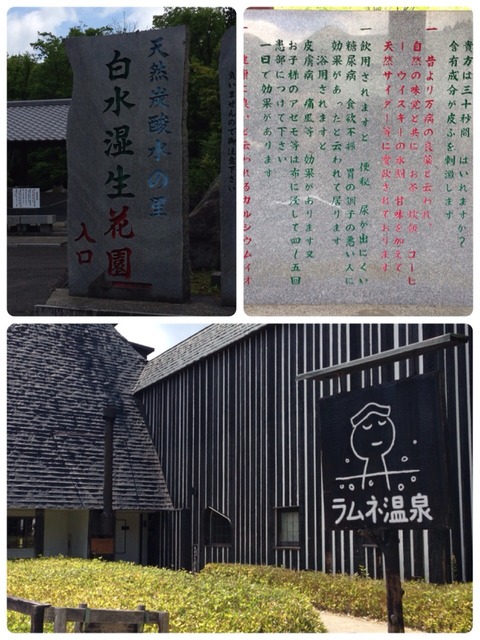 天然炭酸水の里
白水湿生花園
入口
貴方は三十秒間 はいれますか?
含有成分が皮ふを刺激します
一 昔より万病の良薬と云われ!
自然の味覚と共に お茶 炊飯 コーヒ
ー ウイスキーの水割 甘味を加えて
天然サイダー等に愛飲されております
一 飲用されますと 便秘 尿が出にくい
糖尿病 食欲不振 胃の調子の悪い人に
効果があったと云われて居ります
一 浴用されますと
皮膚病 痛風等 効果があります又
お子様のアセモ等は布に浸して四〜五回
患部につけて下さい
一日で効果があります
ラムネ温泉